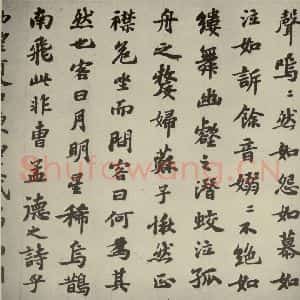 聲嗚〻然如怨如慕如
泣如訴餘音嫋〻不絕如
縷舞幽壑之潛蛟泣孤
舟之嫠婦蘇子愀然正
襟危坐而問客曰何為其
然也客曰月明星稀烏鵲
南飛此非曹孟德之詩乎
Shufawang.cn